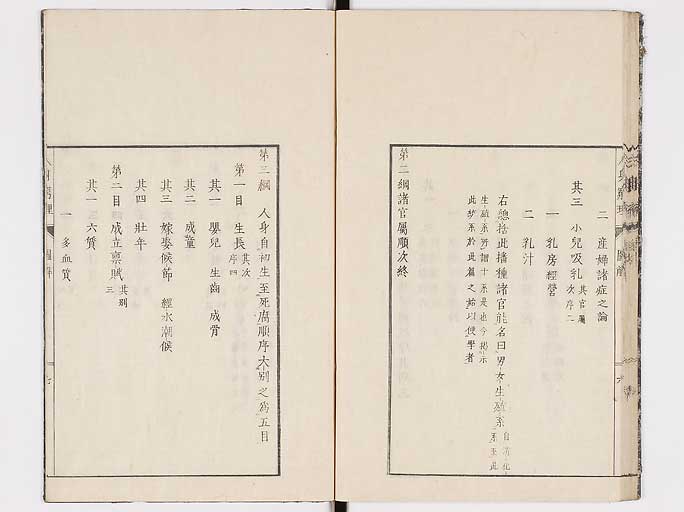 二 產婦諸症之論
其三 小兒吸乳 其官屬次序二
一 乳房經營
二 乳汁
右總括此播種諸官能名曰男女生殖系
生殖系所謂十系是也今揭示
此諸系於此篇之始以便學者
第二綱諸官屬順次終
第三綱 人身自初生至死腐順序大別之爲五目
第一目 生長 其次序四
其一 嬰兒 生齒 成骨
其二 成童
其三 嫁娶候節 經水潮候
其四 壯年
第二目 成立稟賦 其別三
其一 六質
一 多血質